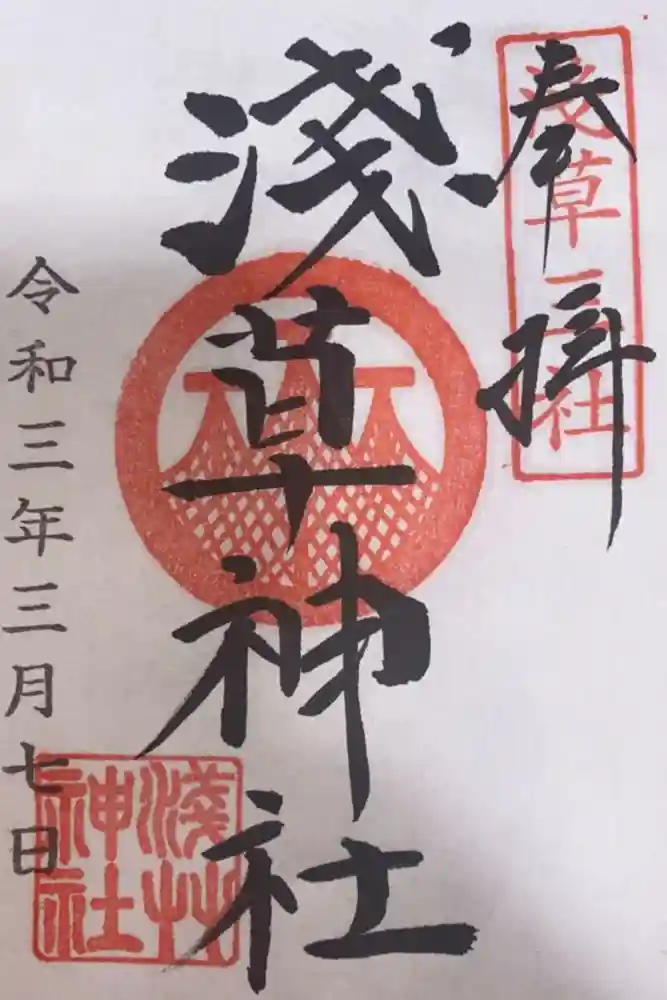 奉拝
淺草三社
淺草神社
令和三年三月七日
淺草
神社